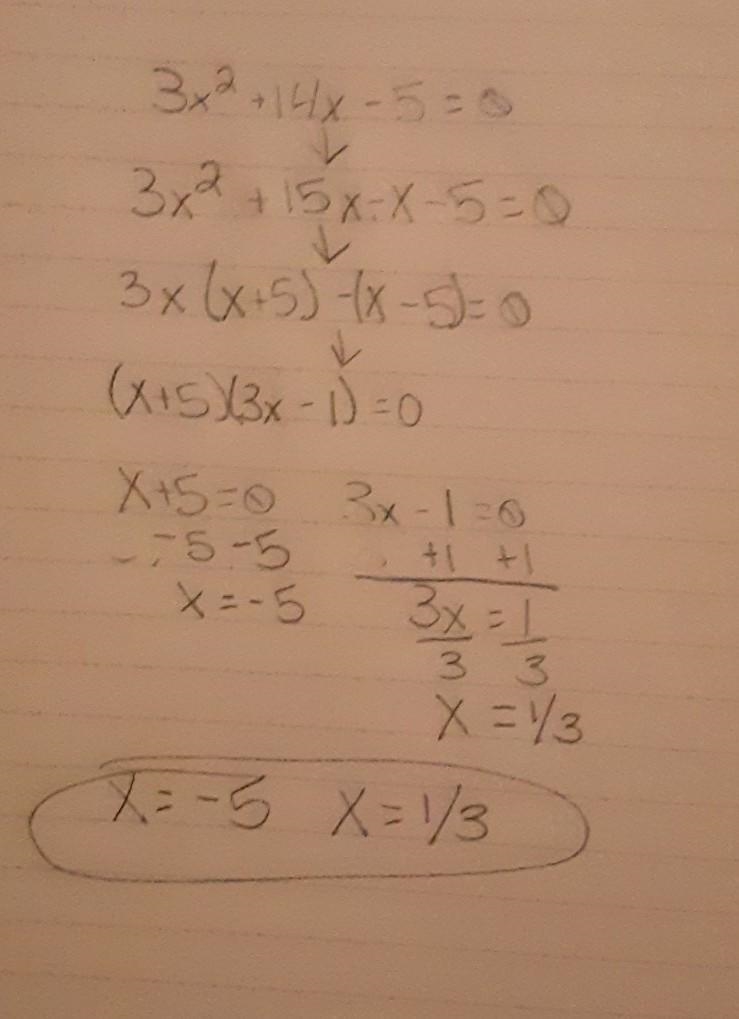 3x² + 14x - 5 = 0
↓
3x² + 15x - x - 5 = 0
↓
3x (x+5) -(x - 5) = 0
↓
(x+5)(3x - 1) = 0
x+5=0 3x - 1 = 0
-5 -5 +1 +1
x = -5 3x/3 = 1/3
x = 1/3
x = -5 x = 1/3